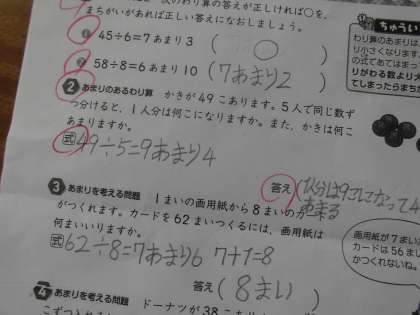 次のわり算の答えが正しければ○を、
まちがいがあれば正しい答えになおしましょう。
① 45÷6=7 あまり 3 ( ○ )
② 58÷8=6 あまり 10 ( 7あまり2 )
ちゅうい
わり算のあまりは、
り小さくなります。
の式であてはまって
りがわる数より大
てしまったらまち
2 あまりのあるわり算 かきが 49 こあります。5 人で同じ数ず
つ分けると、1 人分は何こになりますか。また、かきは何こ
あまりますか。
式 49÷5=9あまり4
答え
あまる
3 あまりを考える問題 1 まいの画用紙から 8 まいのカ
がつくれます。カードを 62 まいつくるには、画用紙は
何まいいりますか。
式 62÷8=7あまり6 7+1=8
答え ( 8まい )
画用紙が 7 まい
カードは 56 まい
かつくれないね。
4 あまりを考える問題 ドーナツが 38 こ